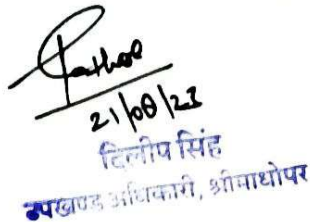 21/08/23
दिलीप सिंह
उपखण्ड अधिकारी, श्रीमाधोपर